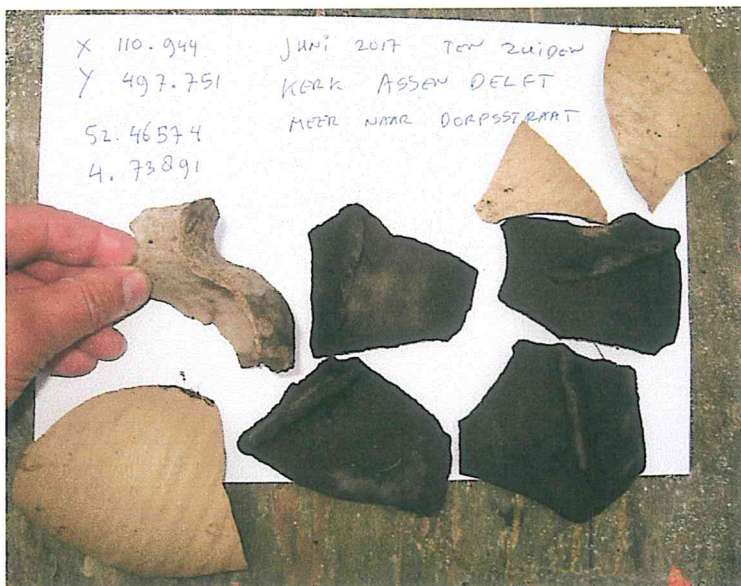 X 110.944
Y 497.751
52.46574
4.73891
JUNI 2017 TEN ZUIDEN
KERK ASSEN DELFT
MEER NAAR DORPSSTRAAT